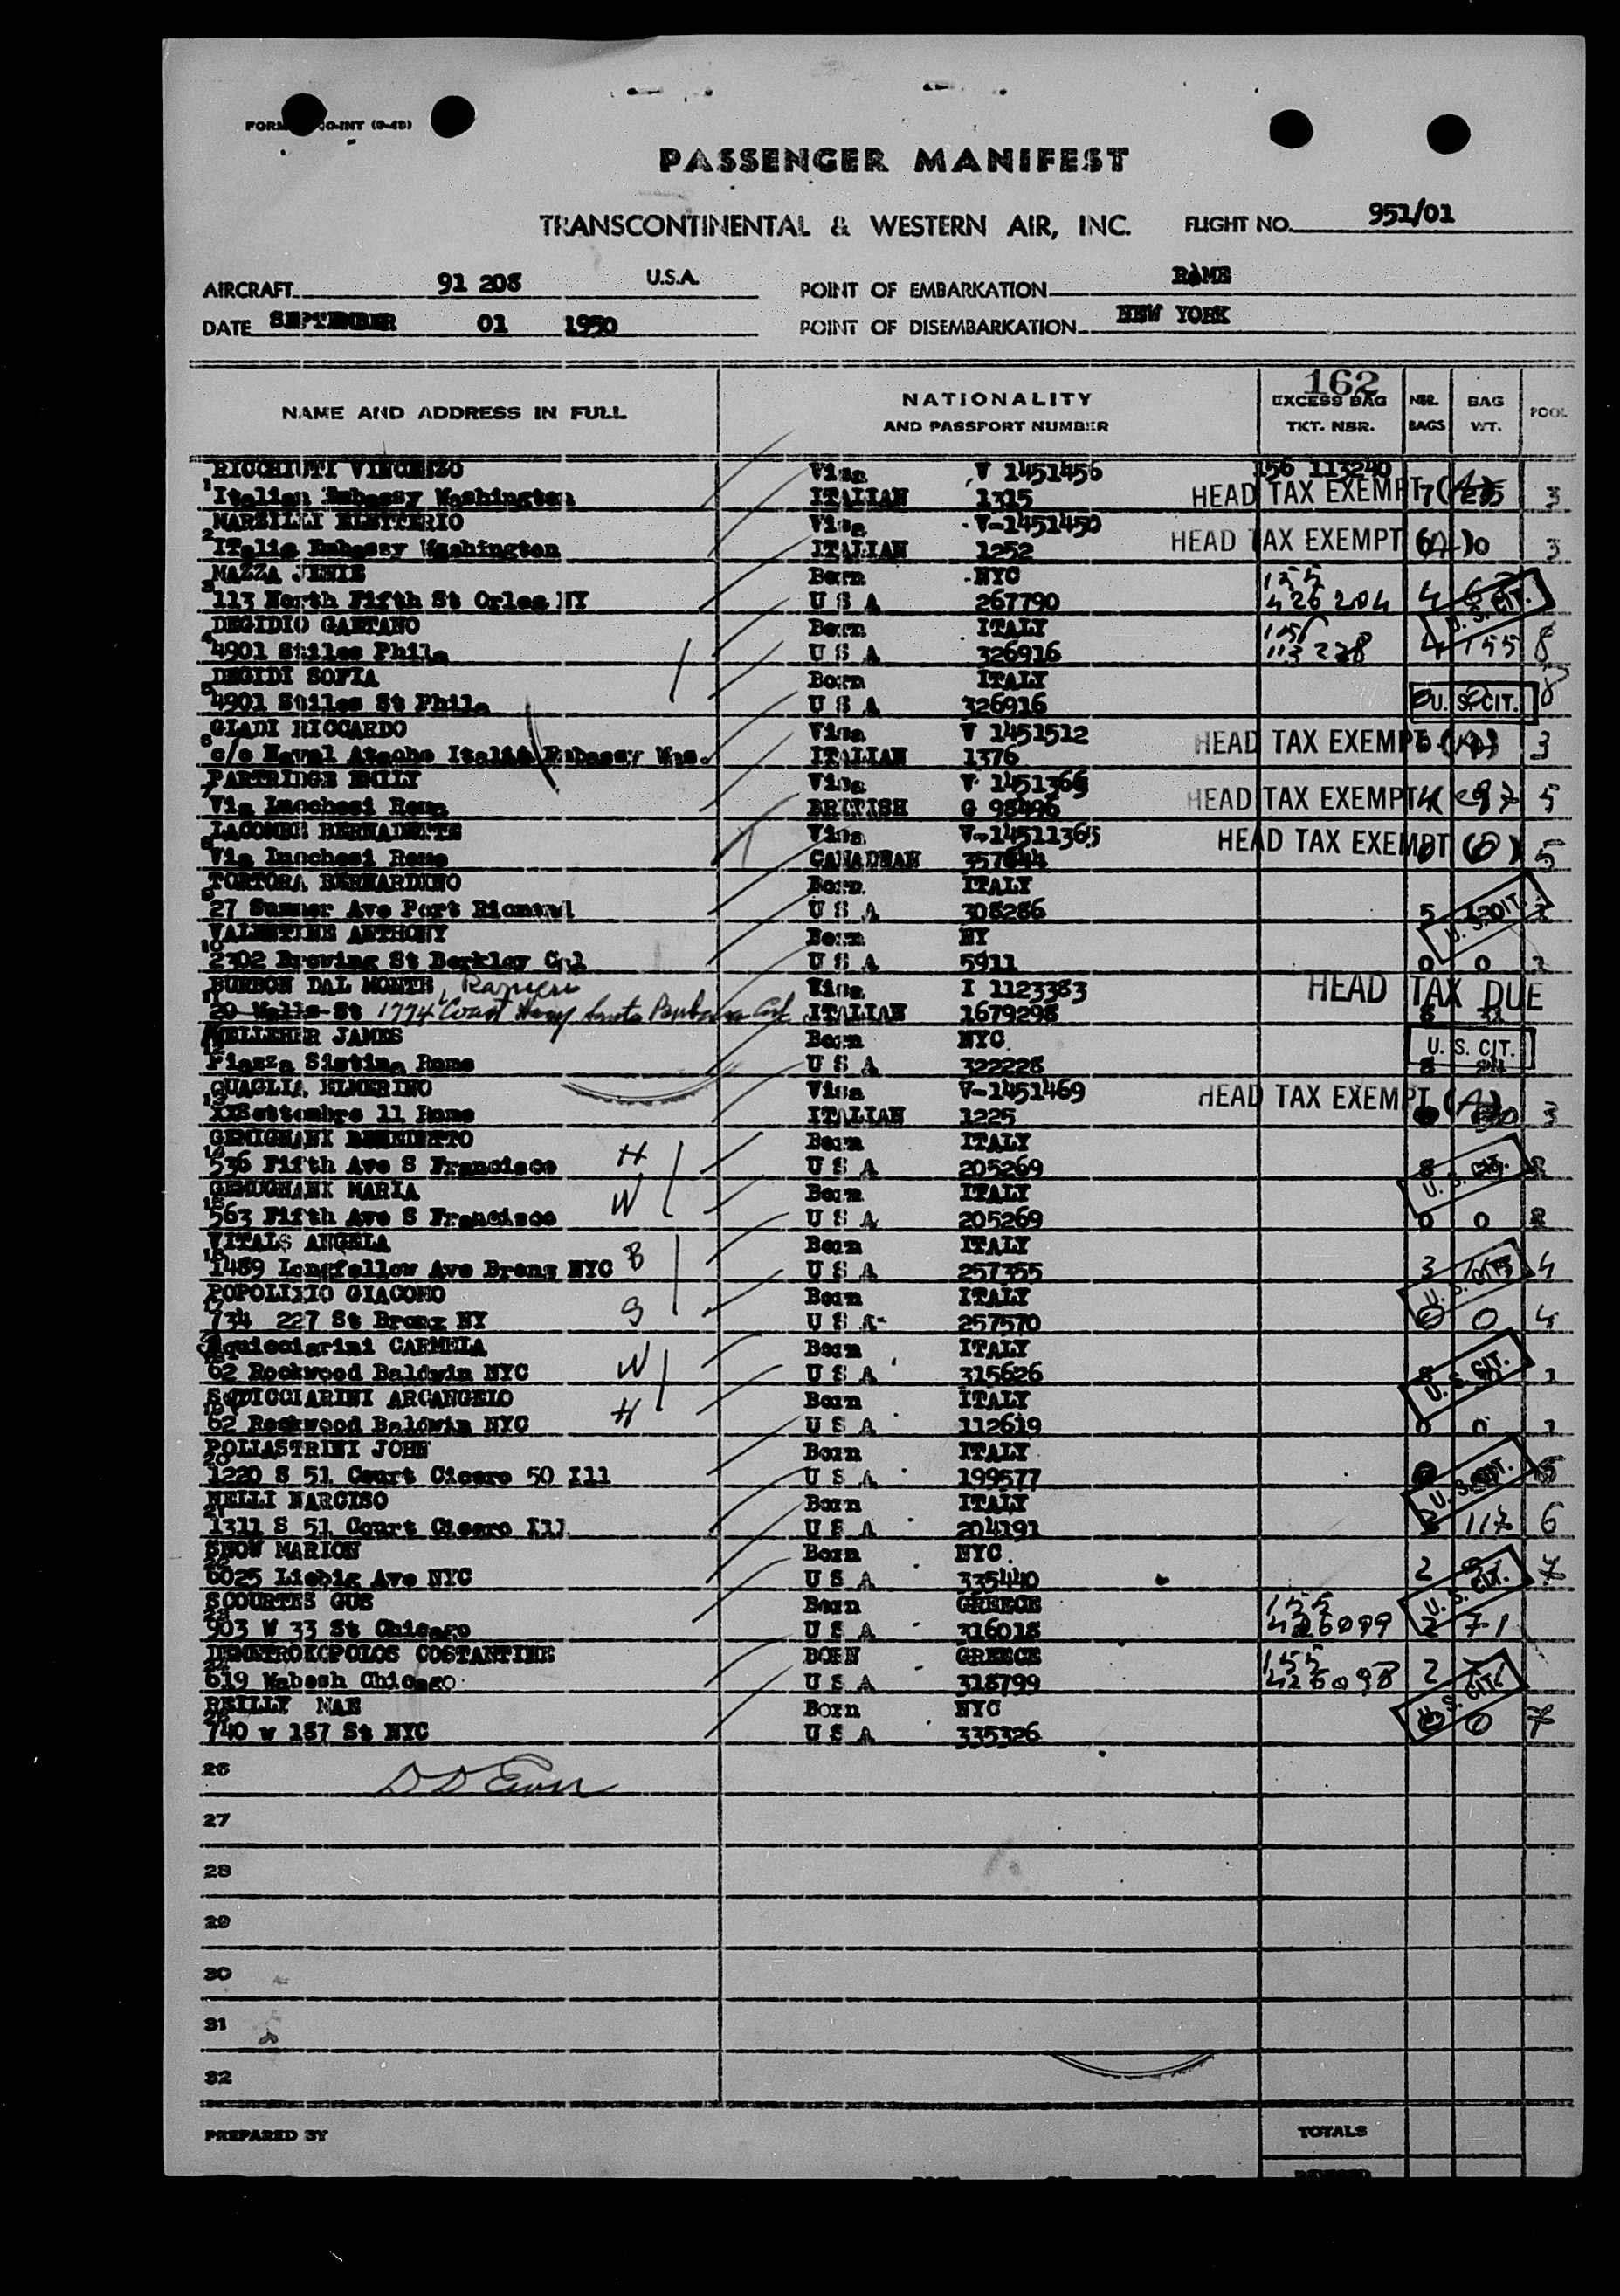 PASSENGER MANIFEST
TRANSCONTINENTAL & WESTERN AIR, INC. FLIGHT NO. 951/01
AIRCRAFT 91 208 U.S.A. POINT OF EMBARKATION ROME
DATE SEPTEMBER 01 1950 POINT OF DISEMBARKATION NEW YORK
162
NAME AND ADDRESS IN FULL NATIONALITY AND PASSPORT NUMBER EXCESS BAG TKT. NBR. NBR. BAGS BAG WT. POOL
RICCHIUTI VINCENZO Visa V 1451456 156 113240
1 Italian Embassy Washington ITALIAN 1315 HEAD TAX EXEMPT 7 3
MARZILLI ELETTERIO Visa V-1451450
2 ITalia Embassy Washington ITALIAN 1252 HEAD TAX EXEMPT 3
MAZZA JENIE Born NYC 155
3 113 North Fifth St Orlea NY U S A 267790 426204 4 U. S. CIT.
DEGIDIO GAETANO Born ITALY 156
4 4901 Stiles Phila U S A 326916 113228 4 155 8
DEGIDI SOFIA Born ITALY
5 4901 Stiles St Phila U S A 326916 U. S. CIT. 8
GIADI RICCARDO Visa V 1451512
6 c/o Naval Atache Italia Embassy Was. ITALIAN 1376 HEAD TAX EXEMPT 3
PARTRIDGE EMILY Visa V 1451366
7 Via Lucchesi Rome BRITISH G 98496 HEAD TAX EXEMPT 5
LACOMBE BERNADETTE Visa V-14511365
8 Via Lucchesi Rome CANADEAN HEAD TAX EXEMPT 5
TORTORA BERNARDINO Born ITALY
9 27 Sumner Ave Port U S A 308286 5 U. S. CIT.
VALENTINE ANTHONY Born NY
10 2302 Broving St Berkley Cal U S A 5911 0 0
BURBON DAL MONTE, Ranieri Visa I 1123383 HEAD TAX DUE
11 20 Walls St 1774 Coast Hway Santa Barbara Cal ITALIAN 1679298
KELLEHER JAMES Born NYC U. S. CIT.
12 Piazza Sistina Rome U S A 322228
QUAGLIA ELMERINO Visa V-1451469 HEAD TAX EXEMPT (A)
13 XXSettembre 11 Rome ITALIAN 1225 3
GEMIGNANI BENEDETTO Born ITALY
14 536 Fifth Ave S Francisco H U S A 205269 U. S. CIT.
GEMUGNANI MARIA Born ITALY
15 563 Fifth Ave S Francisco W U S A 205269 0 0
VITALS ANGELA Born ITALY
16 1489 Longfellow Ave Bronx NYC B U S A 257355 3 U. S. CIT. 4
POPOLIZIO GIACOMO Born ITALY
17 734 227 St Bronx NY S U S A 257570 0 0 4
Squicciarini CARMELA Born ITALY
18 62 Rockwood Baldwin NYC W U S A 315626 U. S. CIT.
SQUICCIARINI ARCANGELO Born ITALY
19 62 Rockwood Baldwin NYC H U S A 112619 0 0
POLIASTRINI JOHN Born ITALY
20 1220 S 51 Court Cicero 50 Ill U S A 199577 U. S. CIT.
NELLI NARCISO Born ITALY
21 1311 S 51 Court Cicero Ill U S A 204191 6
SNOW MARION Born NYC
22 6025 Liebig Ave NYC U S A 335440 2 U. S. CIT. 7
SCOURTES GUS Born GREECE 155
23 903 W 33 St Chicago U S A 316018 426099 2 71
DEMETROKOPOLOS COSTANTINE BORN GREECE 155
24 619 Wabesh Chicago U S A 318799 426098 2 U. S. CIT.
REILLY MAE Born NYC
25 740 w 187 St NYC U S A 335326 0 0 7
26
27
28
29
30
31
32
PREPARED BY TOTALS